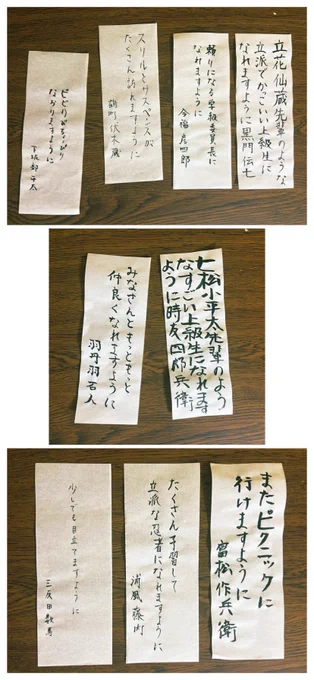 立花仙蔵先輩のような
立派でかっこいい上級生に
なれますように 黒門伝七
頼りになる学級委員長に
なれますように
今福彦四郎
スリルとサスペンスが
たくさん訪れますように
鶴町伏木蔵
なおりますように
下坂部平太
七松小平太先輩のよう
なすごい上級生になれます
ように 時友四郎兵衛
みなさんともっともっと
仲良くなれますように
羽丹羽石人
またピクニックに
行けますように
富松作兵衛
たくさん予習して
立派な忍者になれますように
浦風藤内
少しでも目立てますように
三反田数馬